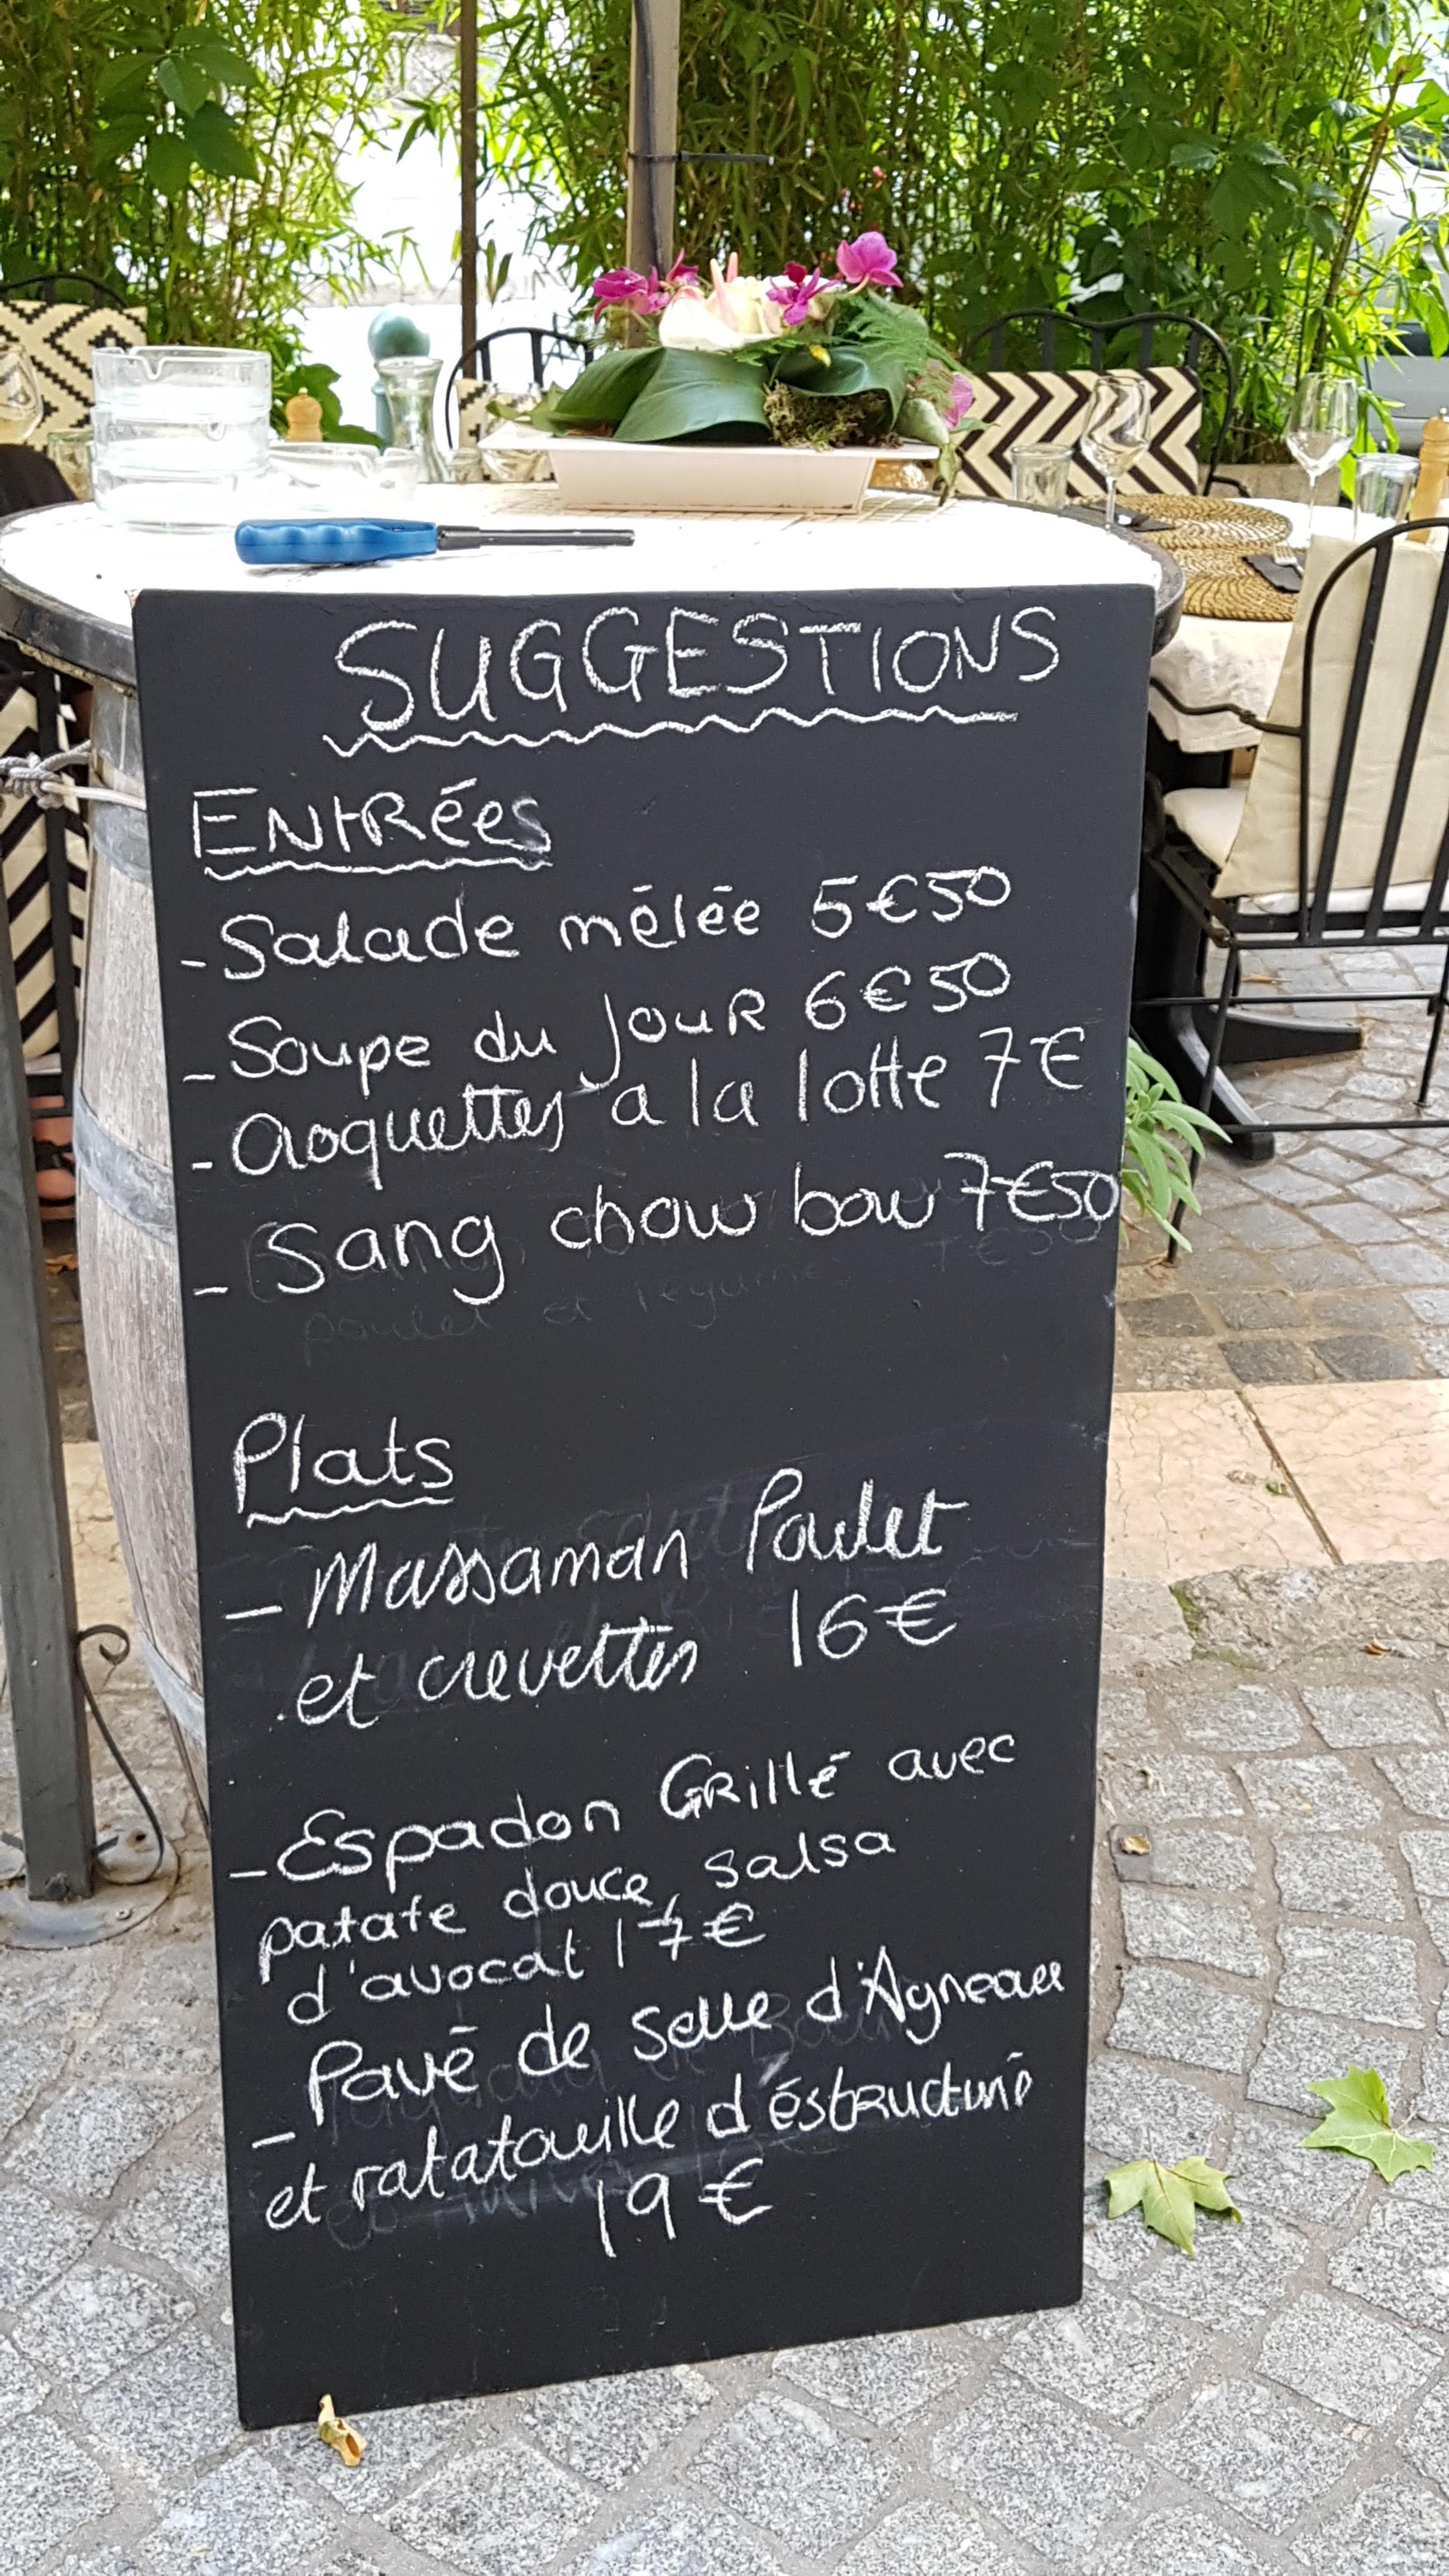 SUGGESTIONS
ENtRées
- Salade mêlée 5€50
- Soupe du JouR 6€50
- Croquettes a la lotte 7€
- Sang chow bow 7€50
poulet et légumes
Plats
- Massaman Poulet
et crevettes 16€
- Espadon GRillé avec
patate douce, salsa
d'avocat 17€
- Pavé de selle d'Agneau
et ratatouille déstructuré
19€